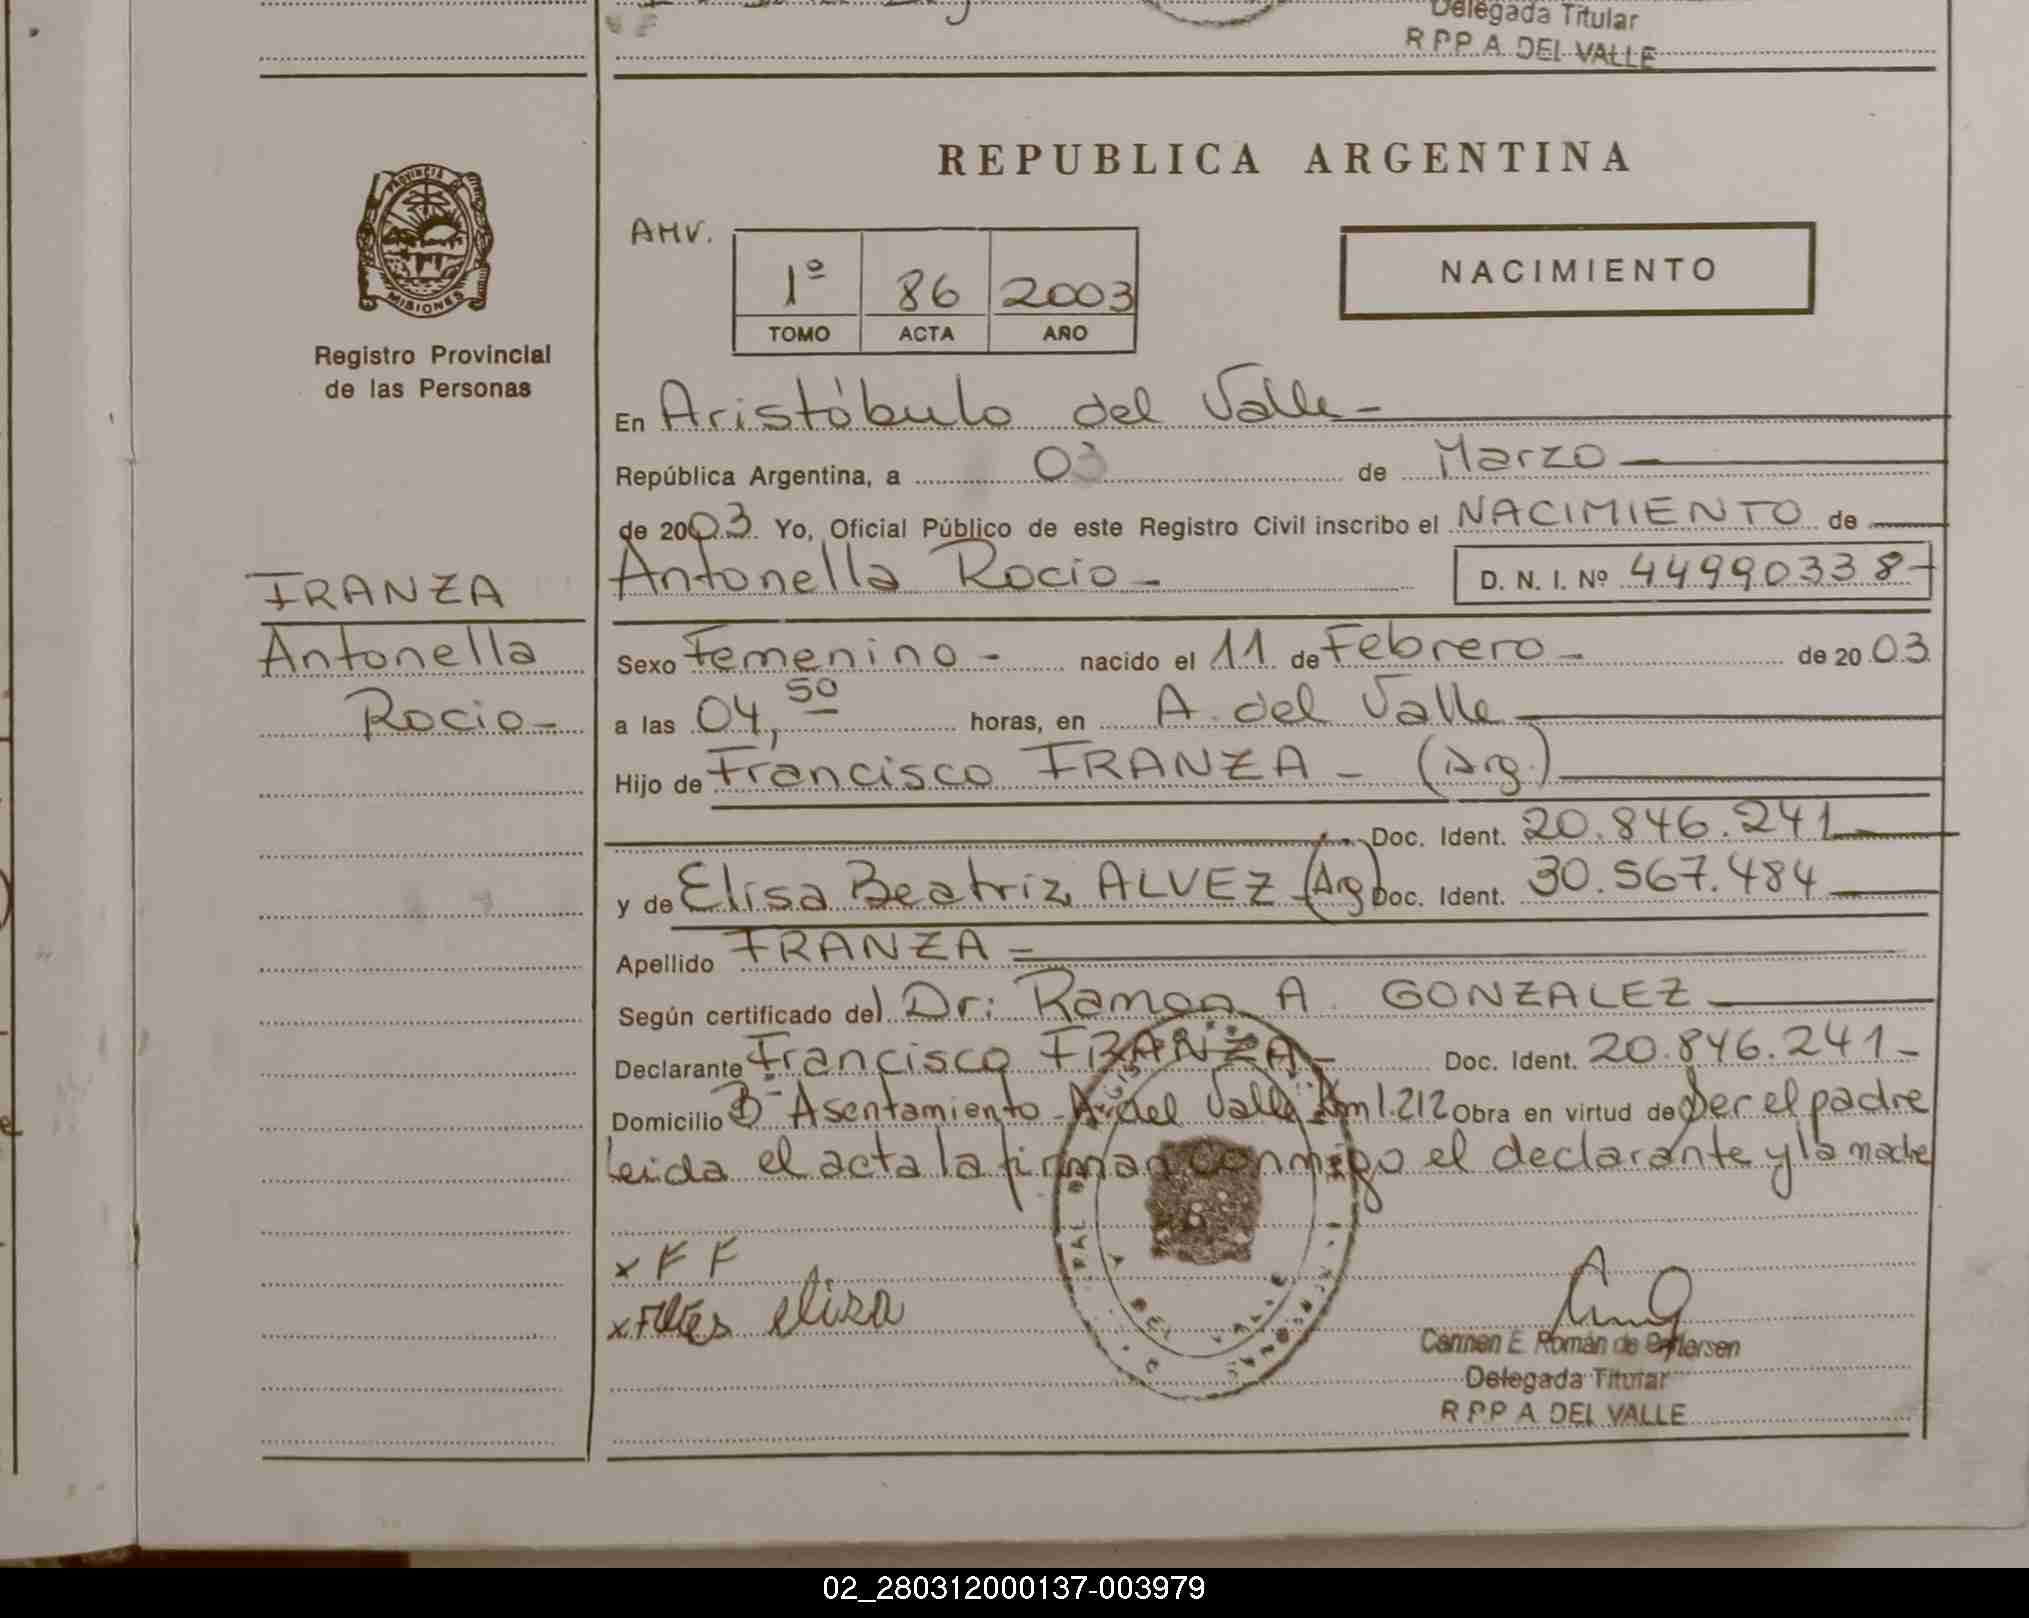 Delegada Titular
R P P A DEL VALLE
PROVINCIA DE
MISIONES
Registro Provincial
de las Personas
REPUBLICA ARGENTINA
AMV.
1º 86 2003
TOMO ACTA AÑO
NACIMIENTO
En Aristóbulo del Valle -
República Argentina, a 03 de Marzo
de 2003. Yo, Oficial Público de este Registro Civil inscribo el NACIMIENTO de
FRANZA
Antonella Rocio - D. N. I. Nº 44990338-
Antonella
Sexo Femenino - nacido el 11 de Febrero - de 2003
Rocio-
a las 04,50 horas, en A. del Valle
Hijo de Francisco FRANZA - (Arg.)
Doc. Ident. 20.846.241
y de Elisa Beatriz ALVEZ (Arg) Doc. Ident. 30.567.484
Apellido FRANZA =
Según certificado del Dr: Ramon A. GONZALEZ
Declarante Francisco FRANZA - Doc. Ident. 20.846.241-
Domicilio Bº Asentamiento A. del Valle Km 1.212 Obra en virtud de Ser el padre
leida el acta la firman conmigo el declarante y la madre
x F F
x eliza
Carmen E. Román de
Delegada Titular
R P P A DEL VALLE
02_280312000137-003979